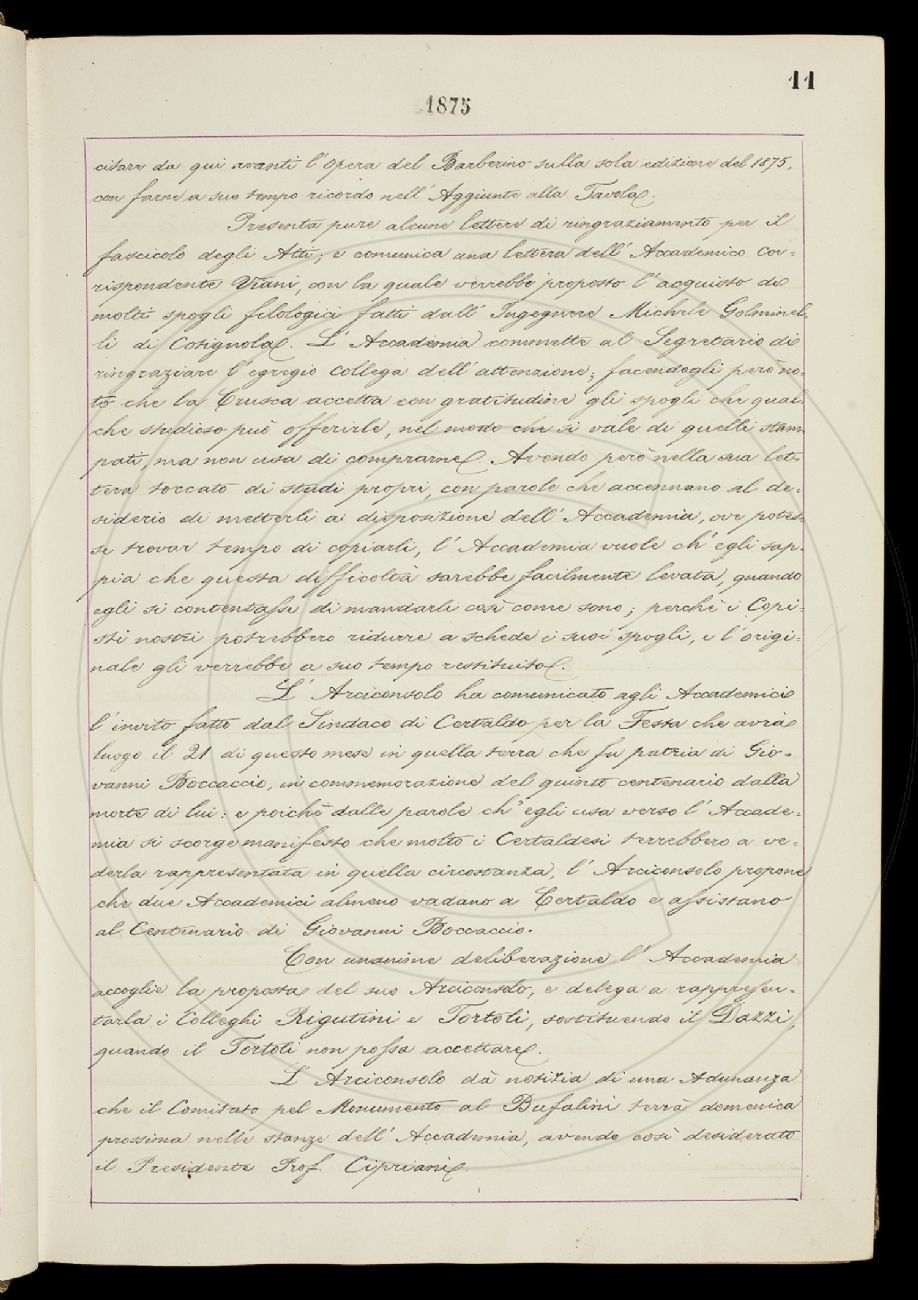 11
1875
citare da qui avanti l'opera del Barberino sulla sola edizione del 1875,
con farne a suo tempo ricordo nell'Aggiunte alla Tavola.
Presenta pure alcune lettere di ringraziamento per il
fascicolo degli Atti; e comunica una lettera dell'Accademico cor-
rispondente Viani, con la quale verrebbe proposto l'acquisto di
molti spogli filologici fatti dall'Ingegnere Michele Golminel-
li di Cotignola. L'Accademia commette al Segretario di
ringraziare l'egregio collega dell'attenzione; facendogli però no-
to che la Crusca accetta con gratitudine gli spogli che qual-
che studioso può offerirle, nel modo che si vale di quelli stam-
pati, ma non usa di comprarne. Avendo però nella sua let-
tera toccato di studi propri, con parole che accennano al de-
siderio di metterli a disposizione dell'Accademia, ove potes-
se trovar tempo di copiarli, l'Accademia vuole ch'egli sap-
pia che questa difficoltà sarebbe facilmente levata, quando
egli si contentasse di mandarli così come sono; perchè i Copi-
sti nostri potrebbero ridurre a schede i suoi spogli, e l'origi-
nale gli verrebbe a suo tempo restituito.
L'Arciconsolo ha comunicato agli Accademici
l'invito fatto dal Sindaco di Certaldo per la Festa che avrà
luogo il 21 di questo mese in quella terra che fu patria di Gio-
vanni Boccaccio, in commemorazione del quinto centenario dalla
morte di lui: e poichè dalle parole ch'egli usa verso l'Accade-
mia si scorge manifesto che molto i Certaldesi terrebbero a ve-
derla rappresentata in quella circostanza, l'Arciconsolo propone
che due Accademici almeno vadano a Certaldo e assistano
al Centenario di Giovanni Boccaccio.
Con unanime deliberazione l'Accademia
accoglie la proposta del suo Arciconsolo, e delega a rappresen-
tarla i Colleghi Rigutini e Tortoli, sostituendo il Dazzi,
quando il Tortoli non possa accettare.
L'Arciconsolo dà notizia di una Adunanza
che il Comitato pel Monumento al Bufalini terrà domenica
prossima nelle stanze dell'Accademia, avendo così desiderato
il Presidente Prof. Cipriani.